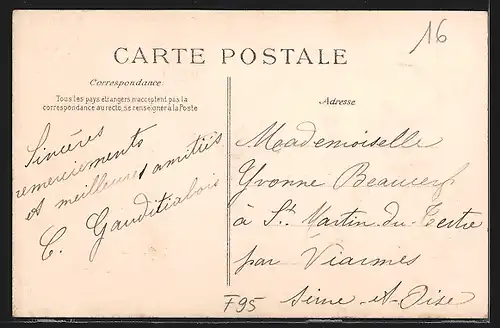 16
CARTE POSTALE
Correspondance
Tous les pays étrangers n'acceptent pas la
correspondance au recto, se renseigner à la Poste
Sincères
remerciements
et meilleures amitiés
C.
Adresse
Mademoiselle
Yvonne
à St. Martin-du-Tertre
par Viarmes
Seine-et-Oise
F95